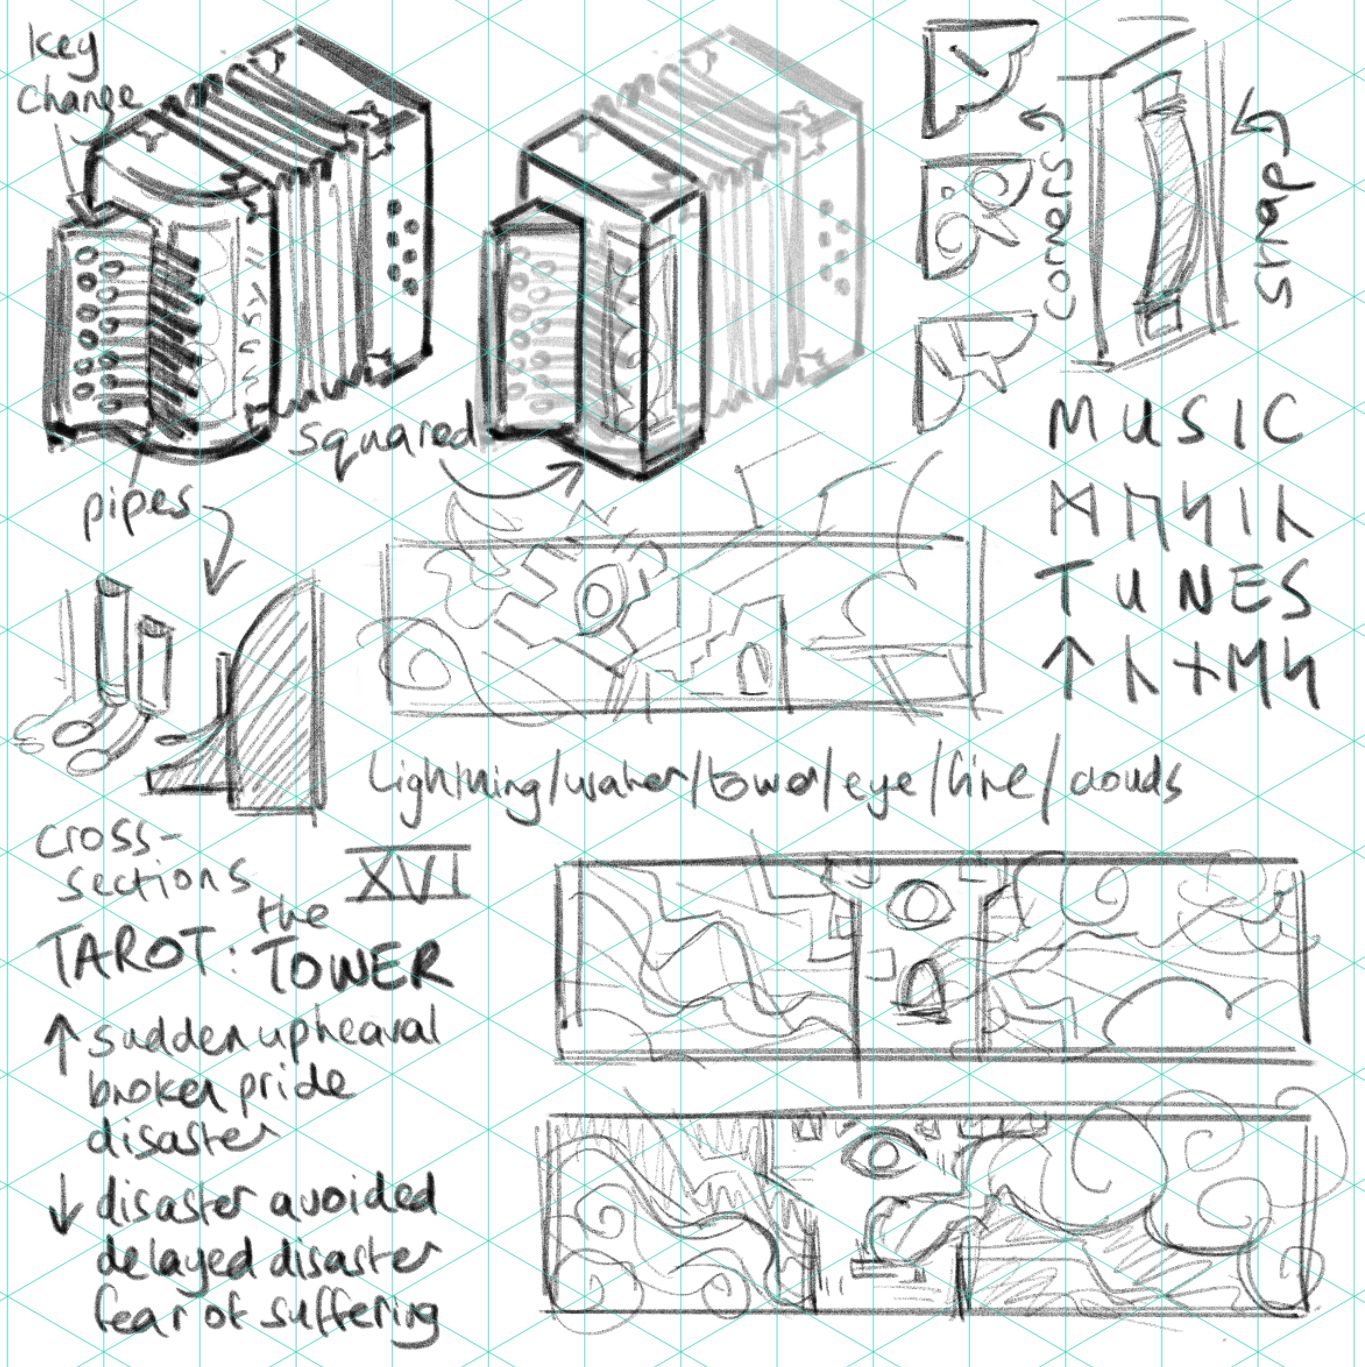 key
change
corners
strap
squared
pipes
MUSIC
ᛗᚢᛋᛁᚳ
TUNES
ᛏᚳᚾᛖᛋ
Lightning/water/tower/eye/fire/clouds
cross-
sections
XVI
TAROT: the TOWER
↑ sudden upheaval
broken pride
disaster
↓ disaster avoided
delayed disaster
fear of suffering